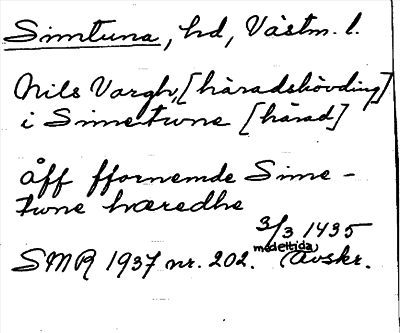 Simtuna, hd, Västm. l.
Nils Vargh, [häradshövding]
i Simetwne [härad]
åff ffornemde Sime-
twne hæredhe
3/3 1435
SMR 1937 nr. 202. medeltida Avskr.